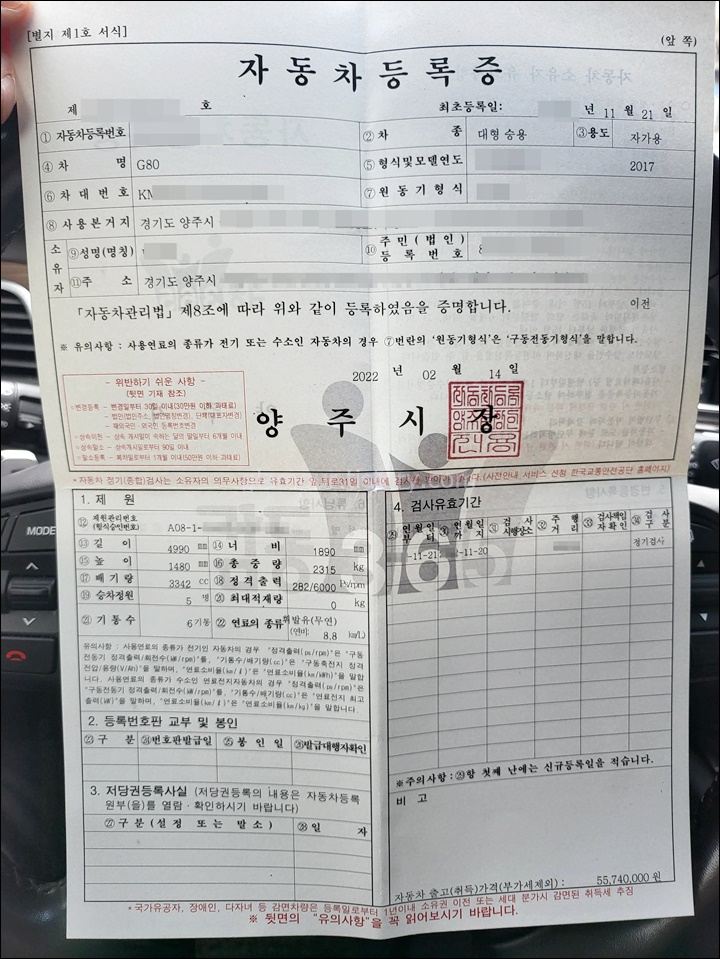 [별지 제1호 서식]
(앞 쪽)
자동차등록증
제 호
최초등록일: 년 11 월 21 일
① 자동차등록번호
② 차 종 대형 승용
③용도 자가용
④ 차 명 G80
⑤ 형식및모델연도 2017
⑥ 차 대 번 호 KN
⑦ 원 동 기 형 식
⑧ 사 용 본 거 지 경기도 양주시
소유자
⑨성명(명칭)
⑩ 주민(법인)등록번호
⑪주 소 경기도 양주시
「자동차관리법」 제8조에 따라 위와 같이 등록하였음을 증명합니다.
이전
※ 유의사항 : 사용연료의 종류가 전기 또는 수소인 자동차의 경우 ⑦번란의 '원동기형식'은 '구동전동기형식'을 말합니다.
2022 년 02 월 14 일
- 위반하기 쉬운 사항 -
(뒷면 기재 참조)
○변경등록 - 변경일부터 30일 이내(30만원 이하 과태료)
- 재외국민·외국인 등록번호변경
○상속이전 - 상속 개시일이 속하는 달의 말일부터 6개월 이내
○말소등록 - 폐차일로부터 1개월 이내(50만원 이하 과태료)
양 주 시 장
1. 제 원
⑫ 제원관리번호(형식승인번호) A08-1-
⑬ 길 이 4990 mm
⑭ 너 비 1890 mm
⑮ 높 이 1480 mm
⑯ 총 중 량 2315 kg
⑰ 배 기 량 3342 cc
⑱ 정 격 출 력 282/6000 Ps/rpm
⑲ 승차정원 5 명
⑳ 최대적재량 0 kg
㉑ 기 통 수 6 기통
㉒ 연료의 종류 휘발유(무연)
(연비: 8.8 km/L)
유의사항 : 사용연료의 종류가 전기인 자동차의 경우 "정격출력(ps/rpm)"은 "구동
전동기 정격출력/회전수(kW/rpm)"를, "기통수/배기량(cc)"은 "구동축전지 정격
전압/용량(V/Ah)"을 말하며, "연료소비율(km/ℓ)"은 "연료소비율(km/kWh)"을 말합
니다. 사용연료의 종류가 수소인 연료전지자동차의 경우 "정격출력(ps/rpm)"은
"구동전동기 정격출력/회전수(kW/rpm)"을, "기통수/배기량(cc)"은 "연료전지 최고
출력(kW)"을 말하며, "연료소비율(km/ℓ)"은 "연료소비율(km/kg)"을 말합니다.
2. 등록번호판 교부 및 봉인
㉓ 구 분 ㉔번호판발급일 ㉕ 봉 인 일 ㉖발급대행자확인
3. 저당권등록사실 (저당권등록의 내용은 자동차등록
원부(을)를 열람·확인하시기 바랍니다)
㉗구분(설정 또는 말소) ㉘일 자
4. 검사유효기간
㉙ 연월일부터
㉚ 연월일까지
㉛ 검사시행장소
㉜ 주행거리
㉝ 검사책임자확인
㉞ 검사구분
-11-21
-11-20
정기검사
※주의사항:㉙항 첫째 난에는 신규등록일을 적습니다.
비 고
자동차 출고(취득)가격(부가세제외) : 55,740,000 원
*국가유공자, 장애인, 다자녀 등 감면차량은 등록일로부터 1년이내 소유권 이전 또는 세대 분가시 감면된 취득세 추징
※ 뒷면의 "유의사항"을 꼭 읽어보시기 바랍니다.
MODE